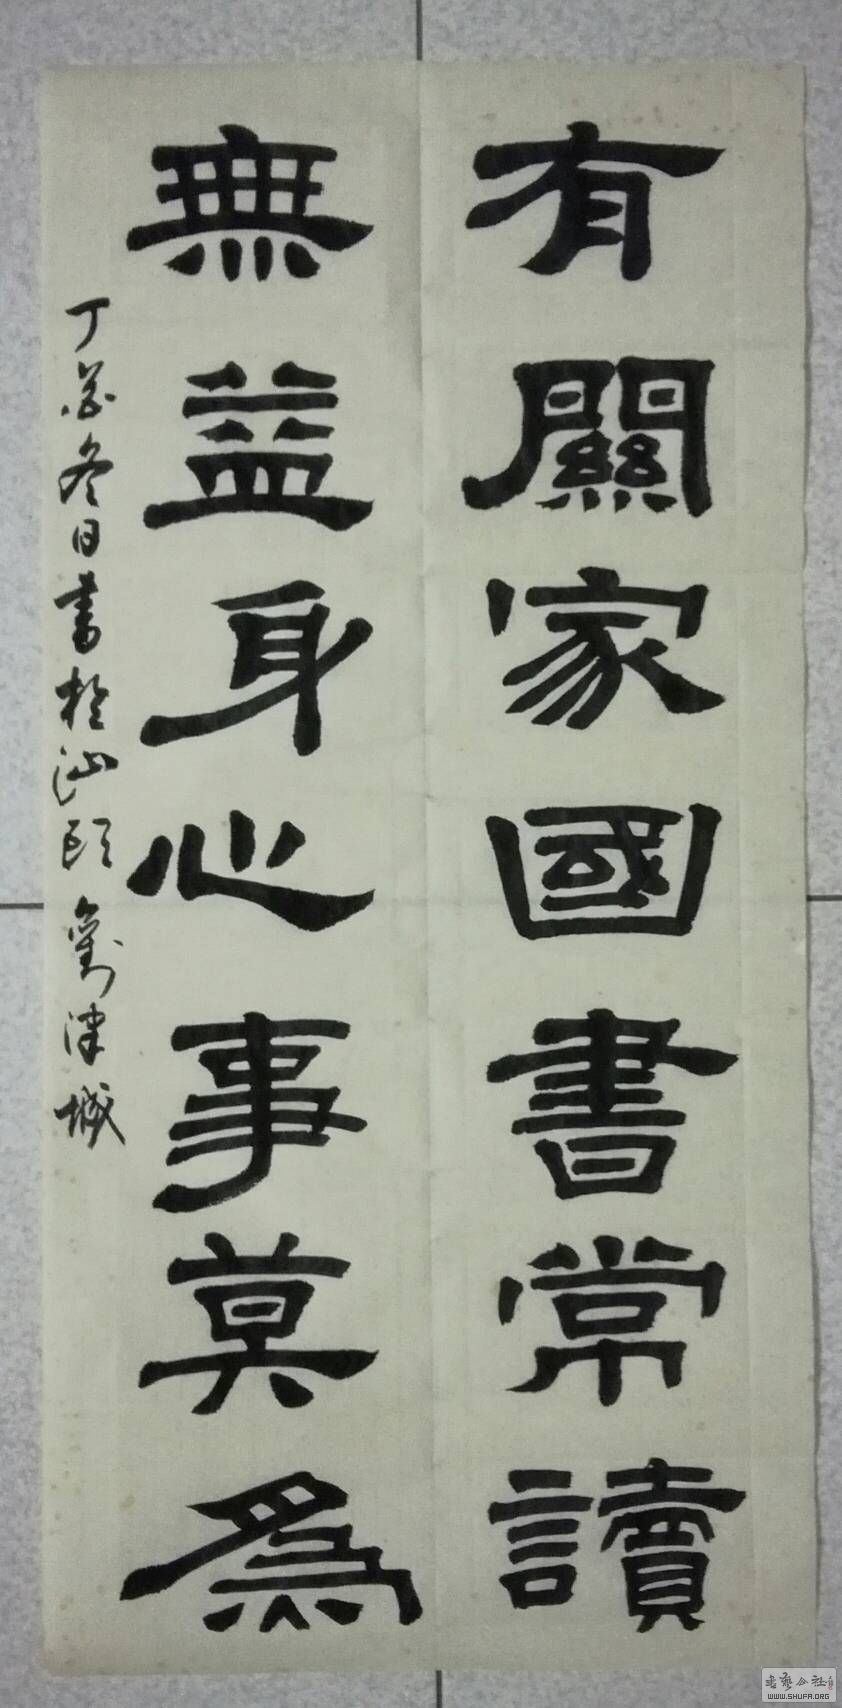 有關家國書常讀
無益身心事莫為
丁酉冬日書於汕頭劉津城
書藝公社
WWW.SHUFA.ORG